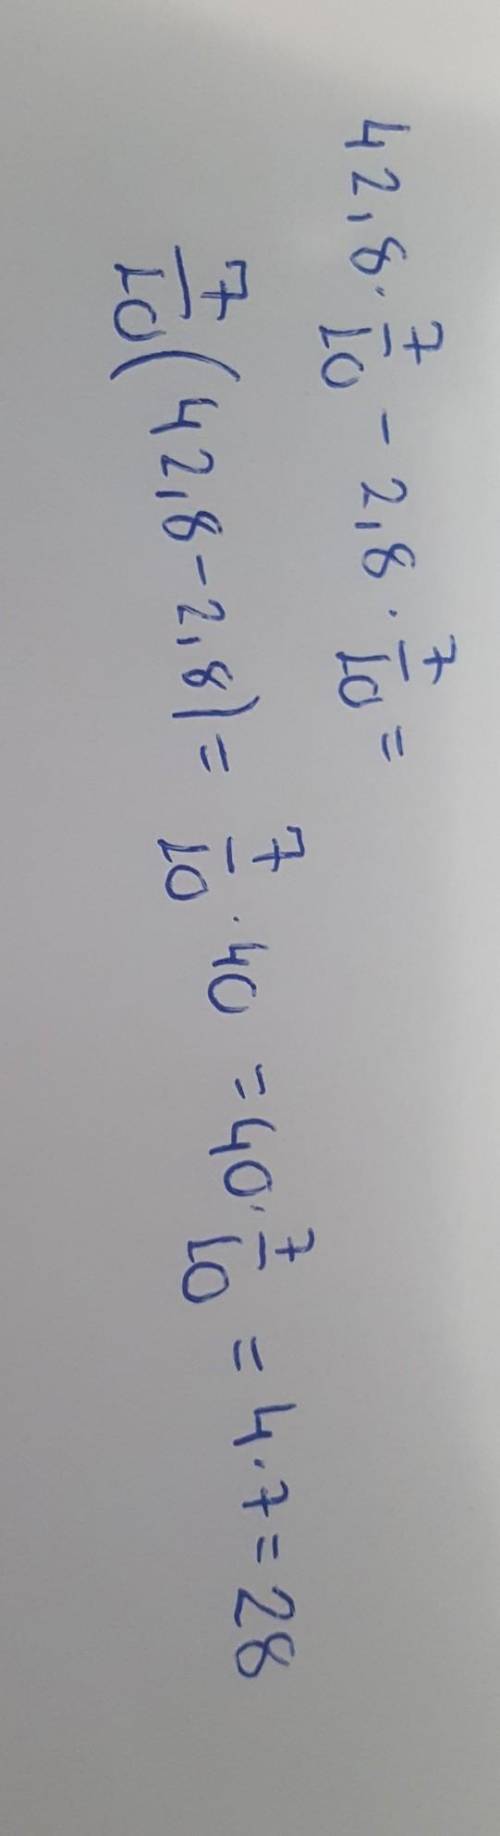 42,8·7/10 - 2,8·7/10 =
7/10(42,8-2,8)= 7/10·40 =40·7/10 = 4·7=28